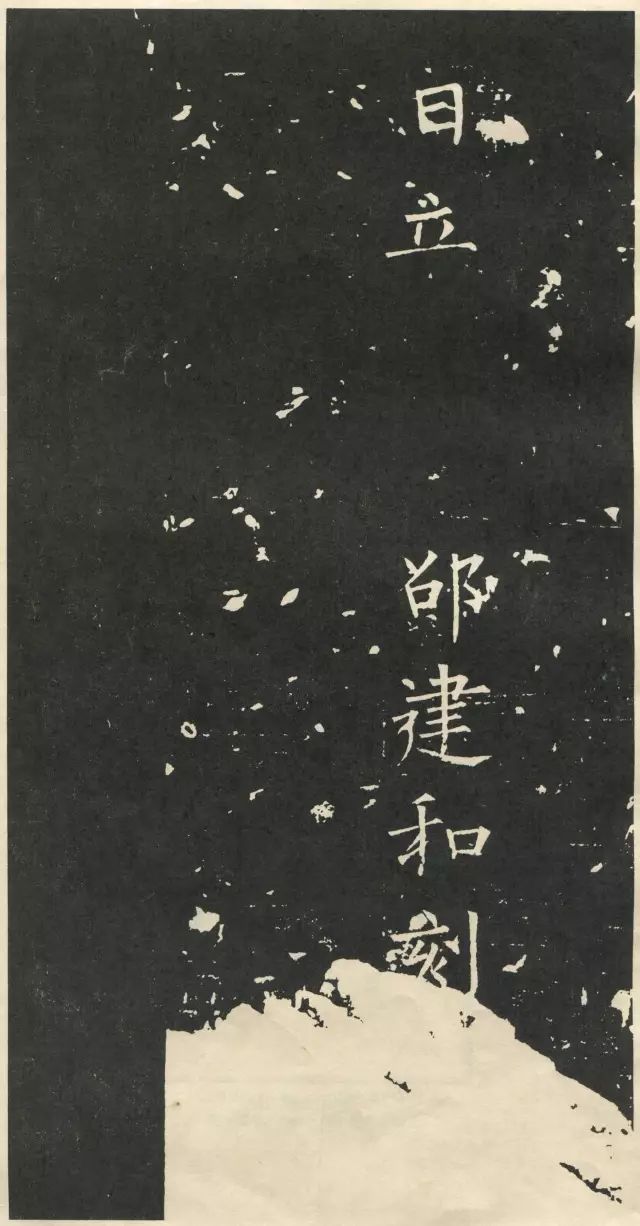 日立 邵建和刻